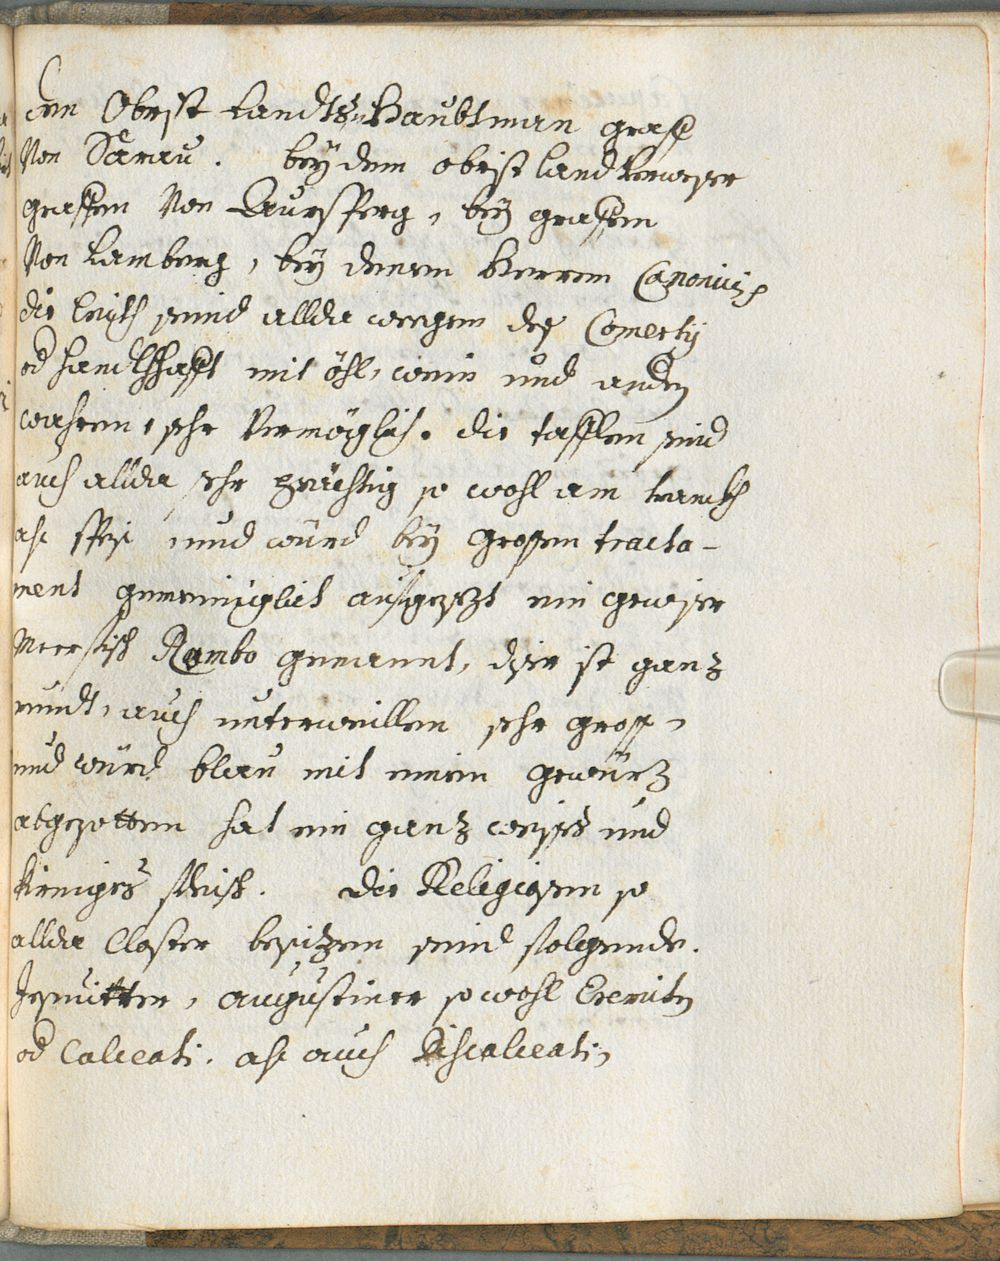 den Obrist Landts Haubtman graff
Von Sarau. bey dem obrist landt Verweser
graffen Von Aursperg, bey graffen
Von Lamberg, bey denen Herren Canonicis
die leith seind allda weegen des Comertij
od handlschafft mit öhl, wein und andern
wahren, sehr Vermöglich. die tafflen seind
auch allda sehr prächtig so wohl am tranckh
als speis unnd würd bey grossen tracta-
ment gemeiniglich aufgesezt ein gewiser
Meerfisch Rombo genannt, diser ist ganz
rundt, auch unterweillen sehr gross,
und würd blau mit einem gewürz
abgesotten hat ein ganz weisses und
kirniges fleisch. Die Religiosen so
allda Closter besitzen seind folgende.
Jesuitter, Augustiner so wohl Eremiten
od Calceati. als auch Discalceati,